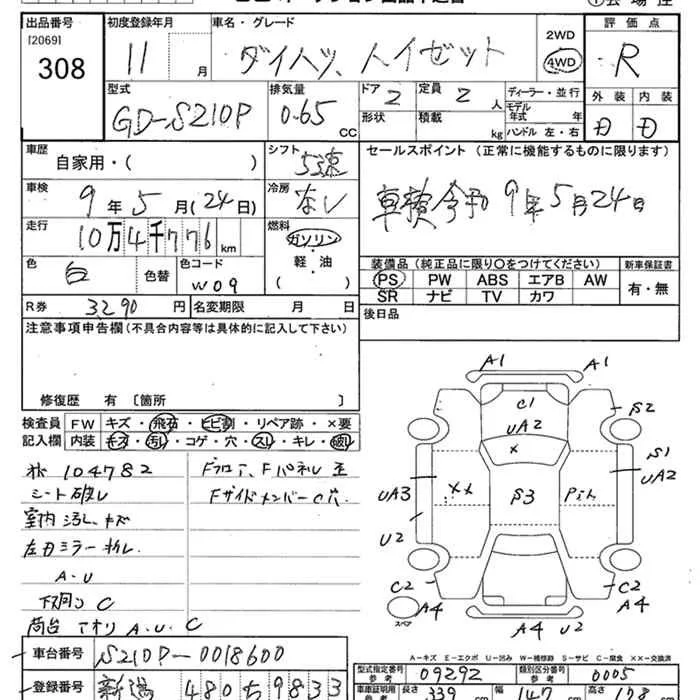 出品番号 初度登録年月 車名・グレード 2WD 評価点
[2069] 308 11 月 ダイハツ、ハイゼット 4WD R
型式 排気量 ドア 定員 ディーラー・並行 外装 内装
GD-S210P 0.65 CC 2 2 人 モデル年式 年
形状 積載 kg ハンドル 左・右 D D
車歴 シフト セールスポイント (正常に機能するものに限ります)
自家用・( ) 5速
車検 冷房 車検令和9年5月24日
9年5月(24日) なし
走行 燃料
10万4千776km ガソリン・軽・油 ( )
色 色コード 装備品 (純正品に限り○をつけてください) 新車保証書
白 色替 W09 PS PW ABS エアB AW 有・無
SR ナビ TV カワ
R券 3290 円 名変期限 月 日 後日品
注意事項申告欄(不具合内容等は具体的に記入して下さい)
修復歴 有 〔箇所 〕
検査員 FW キズ・飛石・ヒビ割・リペア跡・×要
記入欄 内装 キズ・汚し・コゲ・穴・スレ・キレ・破レ
104782
シート破レ
室内汚し、キズ
左右ミラー折レ
A・U
下廻り C
荷台 アオリ A、U、C
フロア、Fパネル
Fサイドメンバー C穴
A1 A1
C1
UA2
S2
×
S1
UA2
UA3
××
S3
U2
C2 C2
A4 A4
A4 U2
スペア
A-キズ E-エクボ U-凹み W-補修跡 S-サビ C-腐食 ××-交換済
車台番号 S210P-0018600 型式指定番号 参考 09292 類別区分番号 参考 0005
登録番号 新潟 480 ち 9833 車庫証明用 参考 長さ 339 幅 147 高